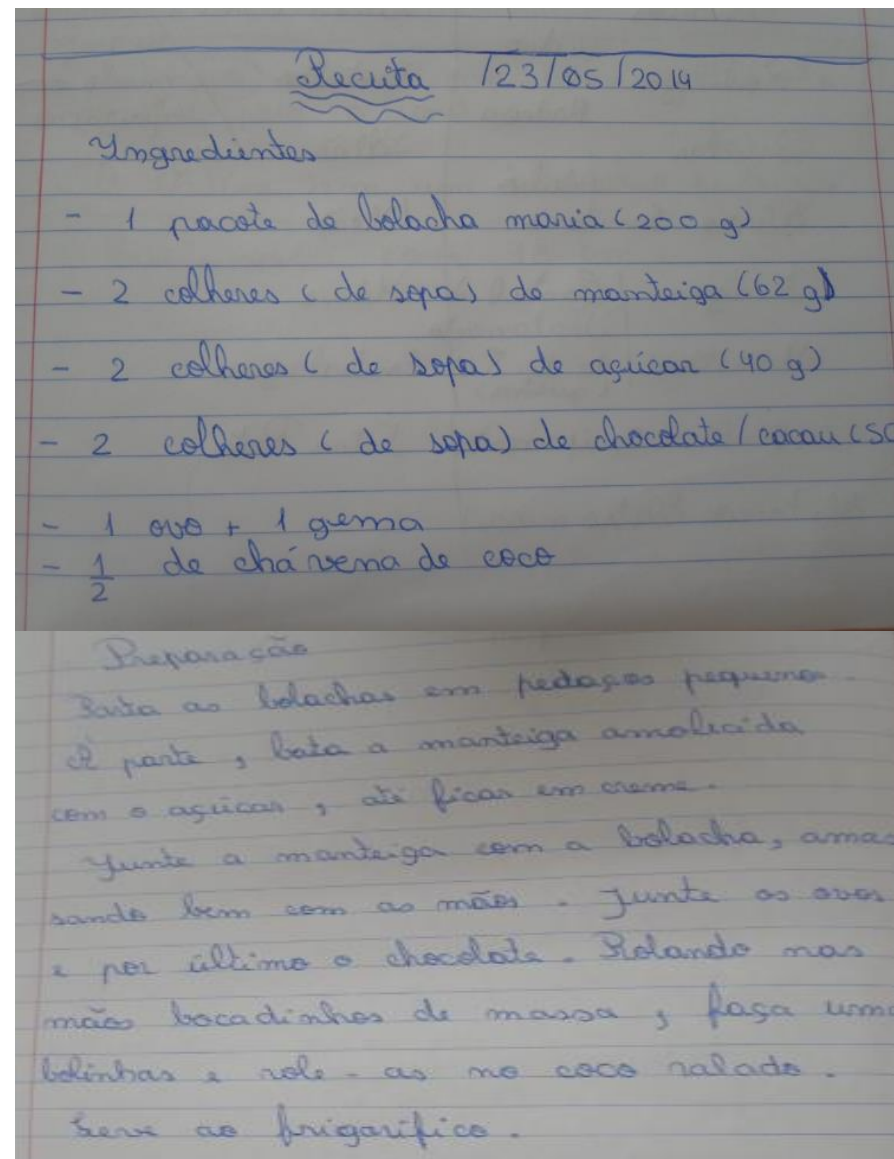 Receita /23/05/2014
Ingredientes
- 1 pacote de bolacha maria (200 g)
- 2 colheres (de sopa) de manteiga (62 g)
- 2 colheres (de sopa) de açúcar (40 g)
- 2 colheres (de sopa) de chocolate/cacau (50
- 1 ovo + 1 gema
- 1/2 de chávena de coco
Preparação
as bolachas em pedaços pequenos.
À parte, bata a manteiga amolecida
com o açúcar, até ficar em creme.
Junte a manteiga com a bolacha, amas
sando bem com as mãos. Junte os ovos
e por último o chocolate. Rolando nas
mãos bocadinhos de massa, faça uma
bolinhas e role-as no coco ralado.
Leve ao frigarífico.